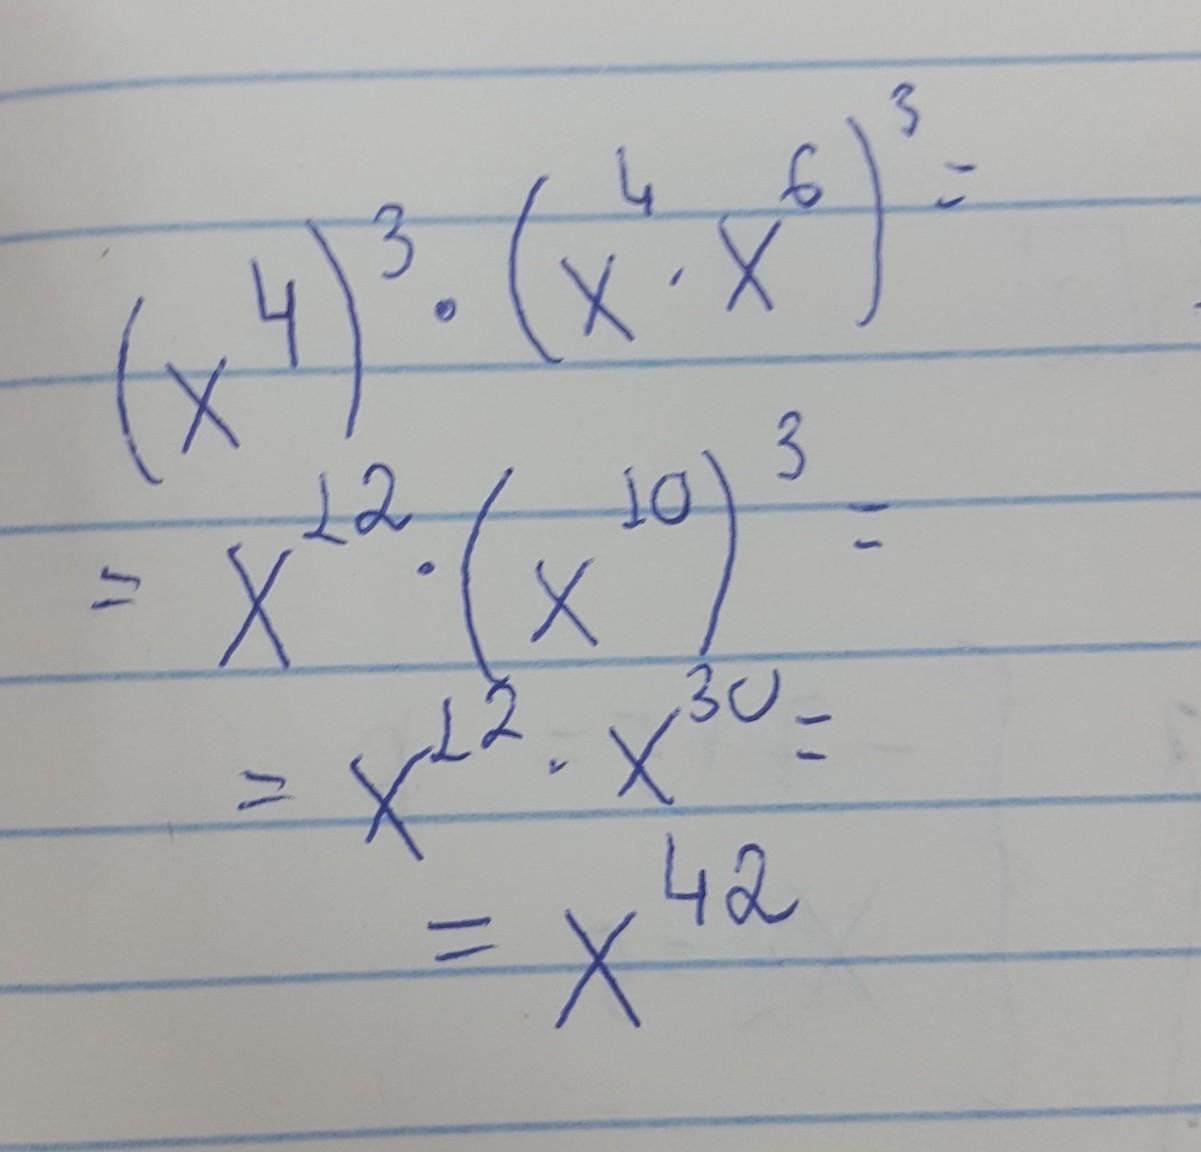 (x⁴)³ · (x⁴ · x⁶)³ =
= x¹² · (x¹⁰)³ =
= x¹² · x³⁰ =
= x⁴²